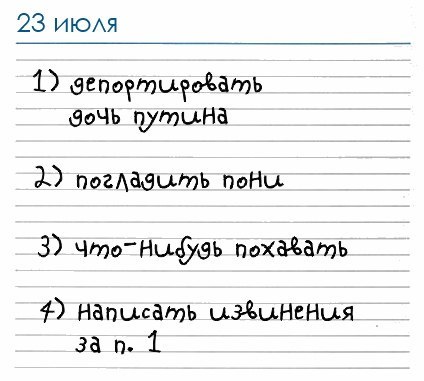 23 июля
1) депортировать
дочь путина
2) погладить пони
3) что-нибудь похавать
4) написать извинения
за п. 1